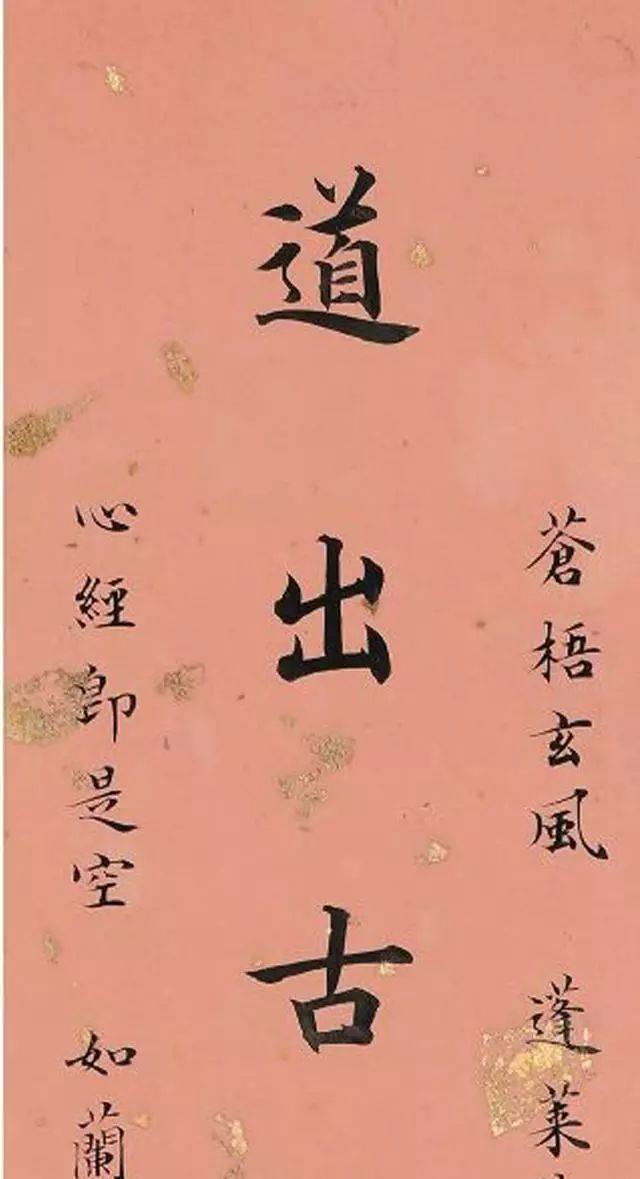 蒼梧玄風 蓬萊
道出古
心經即是空 如蘭